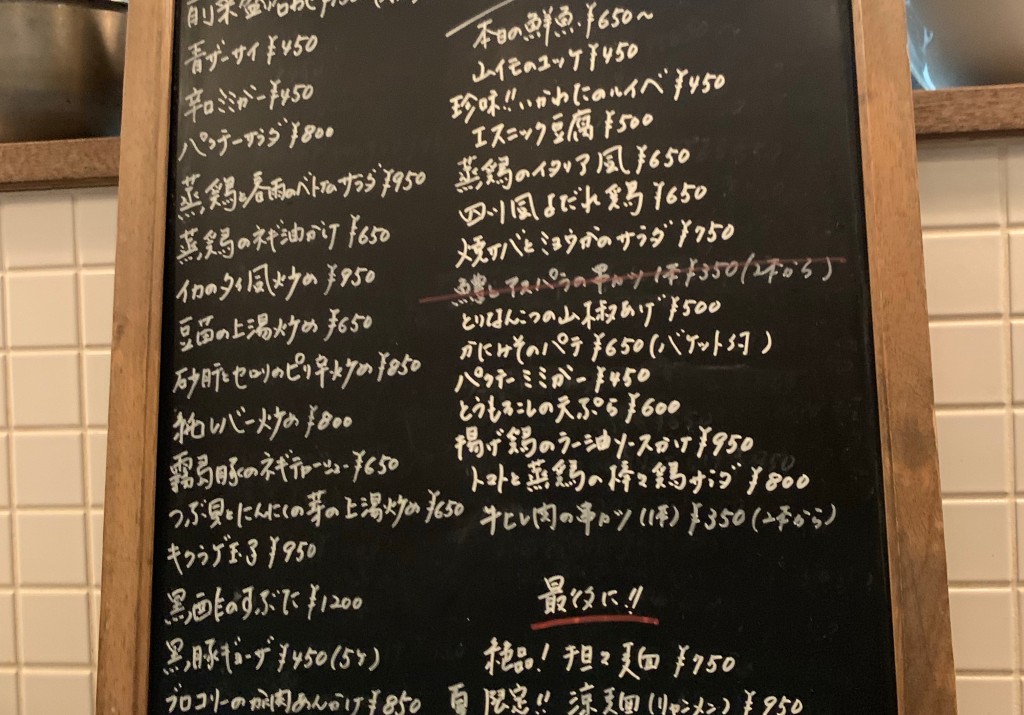 前菜盛合わせ
青ザーサイ ¥450
辛口ミミガー ¥450
パクチーサラダ ¥800
蒸鶏と春雨のベトナムサラダ ¥950
蒸鶏のネギ油かけ ¥650
イカのタイ風炒め ¥950
豆苗の上湯炒め ¥650
砂肝とセロリのピリ辛炒め ¥850
レバー炒め ¥800
霧島豚のネギチャーシュー ¥650
つぶ貝とにんにくの芽の上湯炒め ¥650
キクラゲ玉子 ¥950
黒酢のすぶた ¥1200
黒豚ギョーザ ¥450(5ケ)
ブロコリーのカニ肉あんかけ ¥850
本日の鮮魚 ¥650〜
山イモのユッケ ¥450
珍味!!いかわたのルイベ ¥450
エスニック豆腐 ¥500
蒸鶏のイタリア風 ¥650
四川風よだれ鶏 ¥650
焼サバとミョウガのサラダ ¥750
アスパラの串カツ 1本 ¥350(2本から)
とりなんこつの山椒あげ ¥500
かにみそのパテ ¥650(バケット付)
パクチーミミガー ¥450
とうもろこしの天ぷら ¥600
揚げ鶏のラー油ソースかけ ¥950
トマトと蒸鶏の棒々鶏サラダ ¥800
牛ヒレ肉の串カツ(1本) ¥350(2本から)
最後に!!
絶品!担々麺 ¥750
夏限定!!涼麺(リャンメン) ¥950